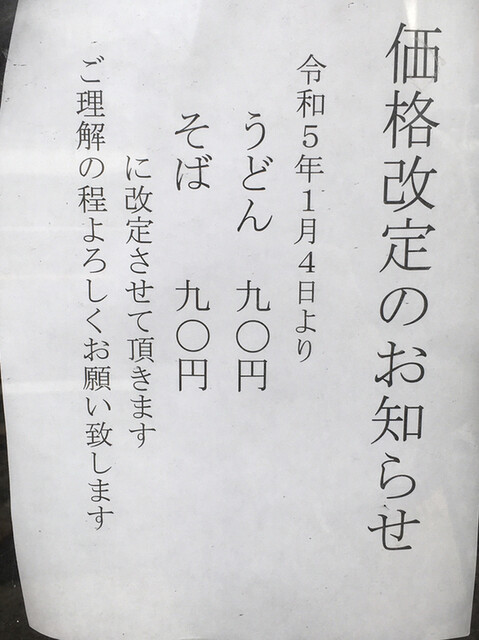 価格改定のお知らせ
令和5年1月4日より
うどん 九〇円
そば 九〇円
に改定させて頂きます
ご理解の程よろしくお願い致します